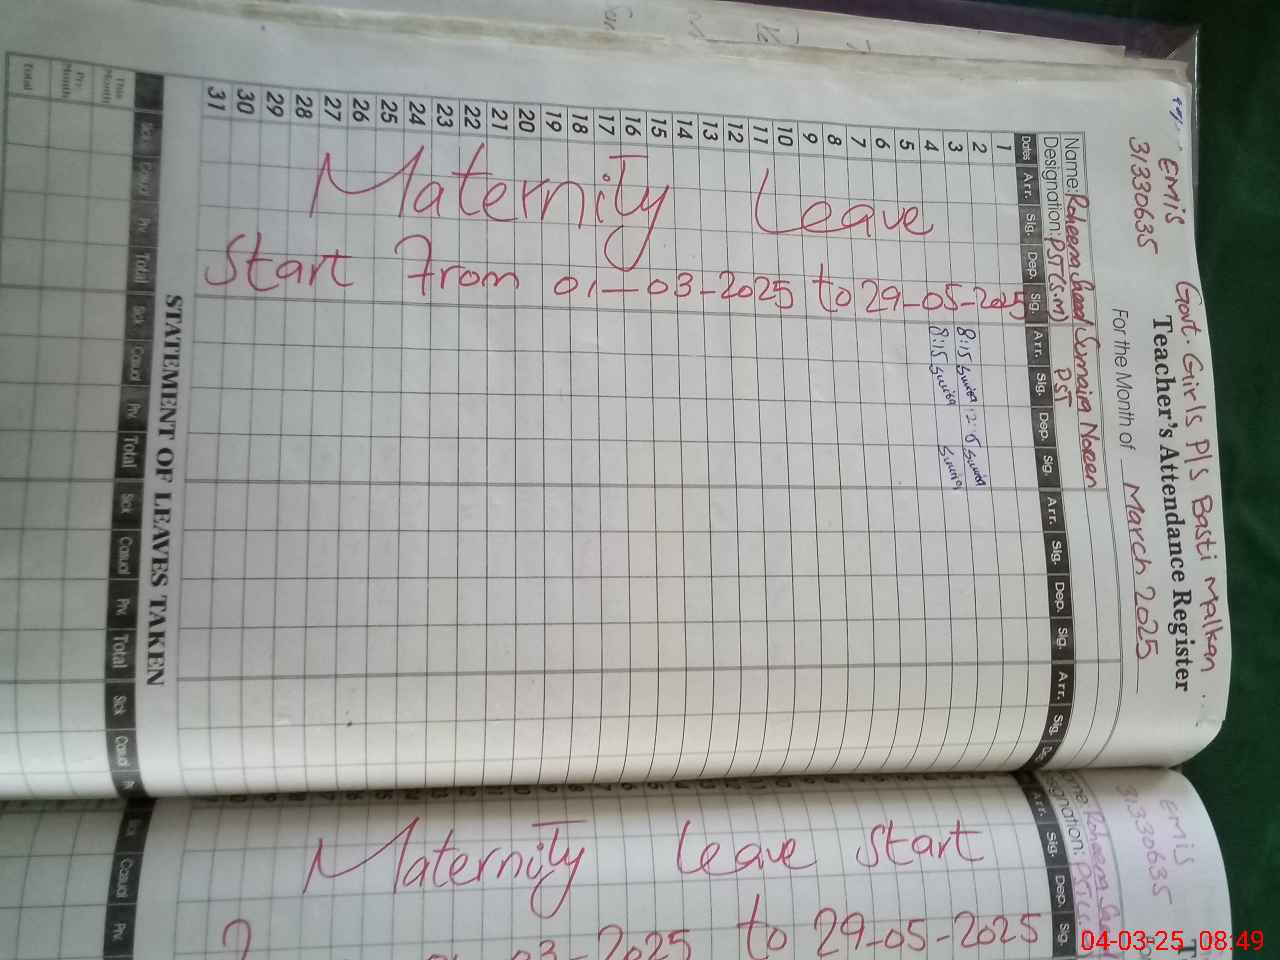 EMIS
31330635
Govt. Girls P/S Basti Malkan
Teacher's Attendance Register
For the Month of March 2025
Name: Raheem Saad Sumaira Noreen
Designation: PST(S.M) PST
Dates Arr. Sig. Dep. Sig. Arr. Sig. Dep. Sig. Arr. Sig. Dep. Sig. Arr. Sig. Dep.
1
2
3 8:15 Sumira 12:15 Sumira
4 8:15 Sumira Sumira
5
6
7
8
9
10
11
12
13
14
15
16
17
18
19
20
21
22
23
24
25
26
27
28
29
30
31
Maternity Leave
Start From 01-03-2025 to 29-05-2025
STATEMENT OF LEAVES TAKEN
Sick Casual Prv. Total Sick Casual Prv. Total Sick Casual Prv. Total Sick Casual Prv.
This Month
Prv. Month
Total
EMIS
31330635
Designation:
Arr. Sig. Dep. Sig.
Maternity Leave Start
03-2025 to 29-05-2025
Sick Casual Prv.
04-03-25 08:49